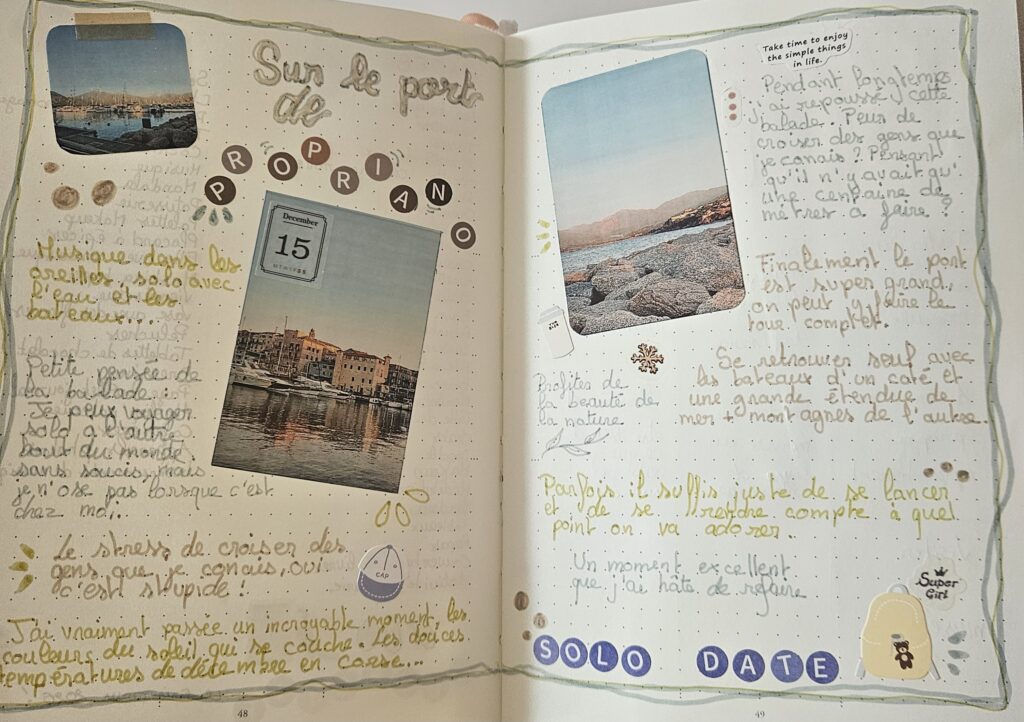 Sur le port
de
PROPRIANO
December
15
M T W T F S S
Musique dans les
oreilles, solo avec
l'eau et les
bateaux...
Petite pensée de
la ballade :
Je peux voyager
solo a l'autre
bout du monde
sans soucis, mais
je n'ose pas lorsque c'est
chez moi.
Le stress de croiser des
gens que je conais, oui
c'est stupide !
J'ai vraiment passée un incroyable moment, les
couleurs du soleil qui se couche. Les douces
températures de décembre en corse...
48
Take time to enjoy
the simple things
in life.
Pendant longtemps
j'ai repoussé cette
balade. Peur de
croiser des gens que
je conais ? Pensant
qu'il n'y avait qu'
une centaine de
mètres a faire ?
Finalement le port
est super grand,
on peut y faire le
tour complet.
Se retrouver seul avec
les bateaux d'un coté et
une grande étendue de
mer + montagnes de l'autre.
Profites de
la beauté de
la nature
Parfois il suffis juste de se lancer
et de se rendre compte à quel
point on va adorer.
Un moment excellent
que j'ai hâte de refaire
CAP
Super
Girl
SOLO DATE
49